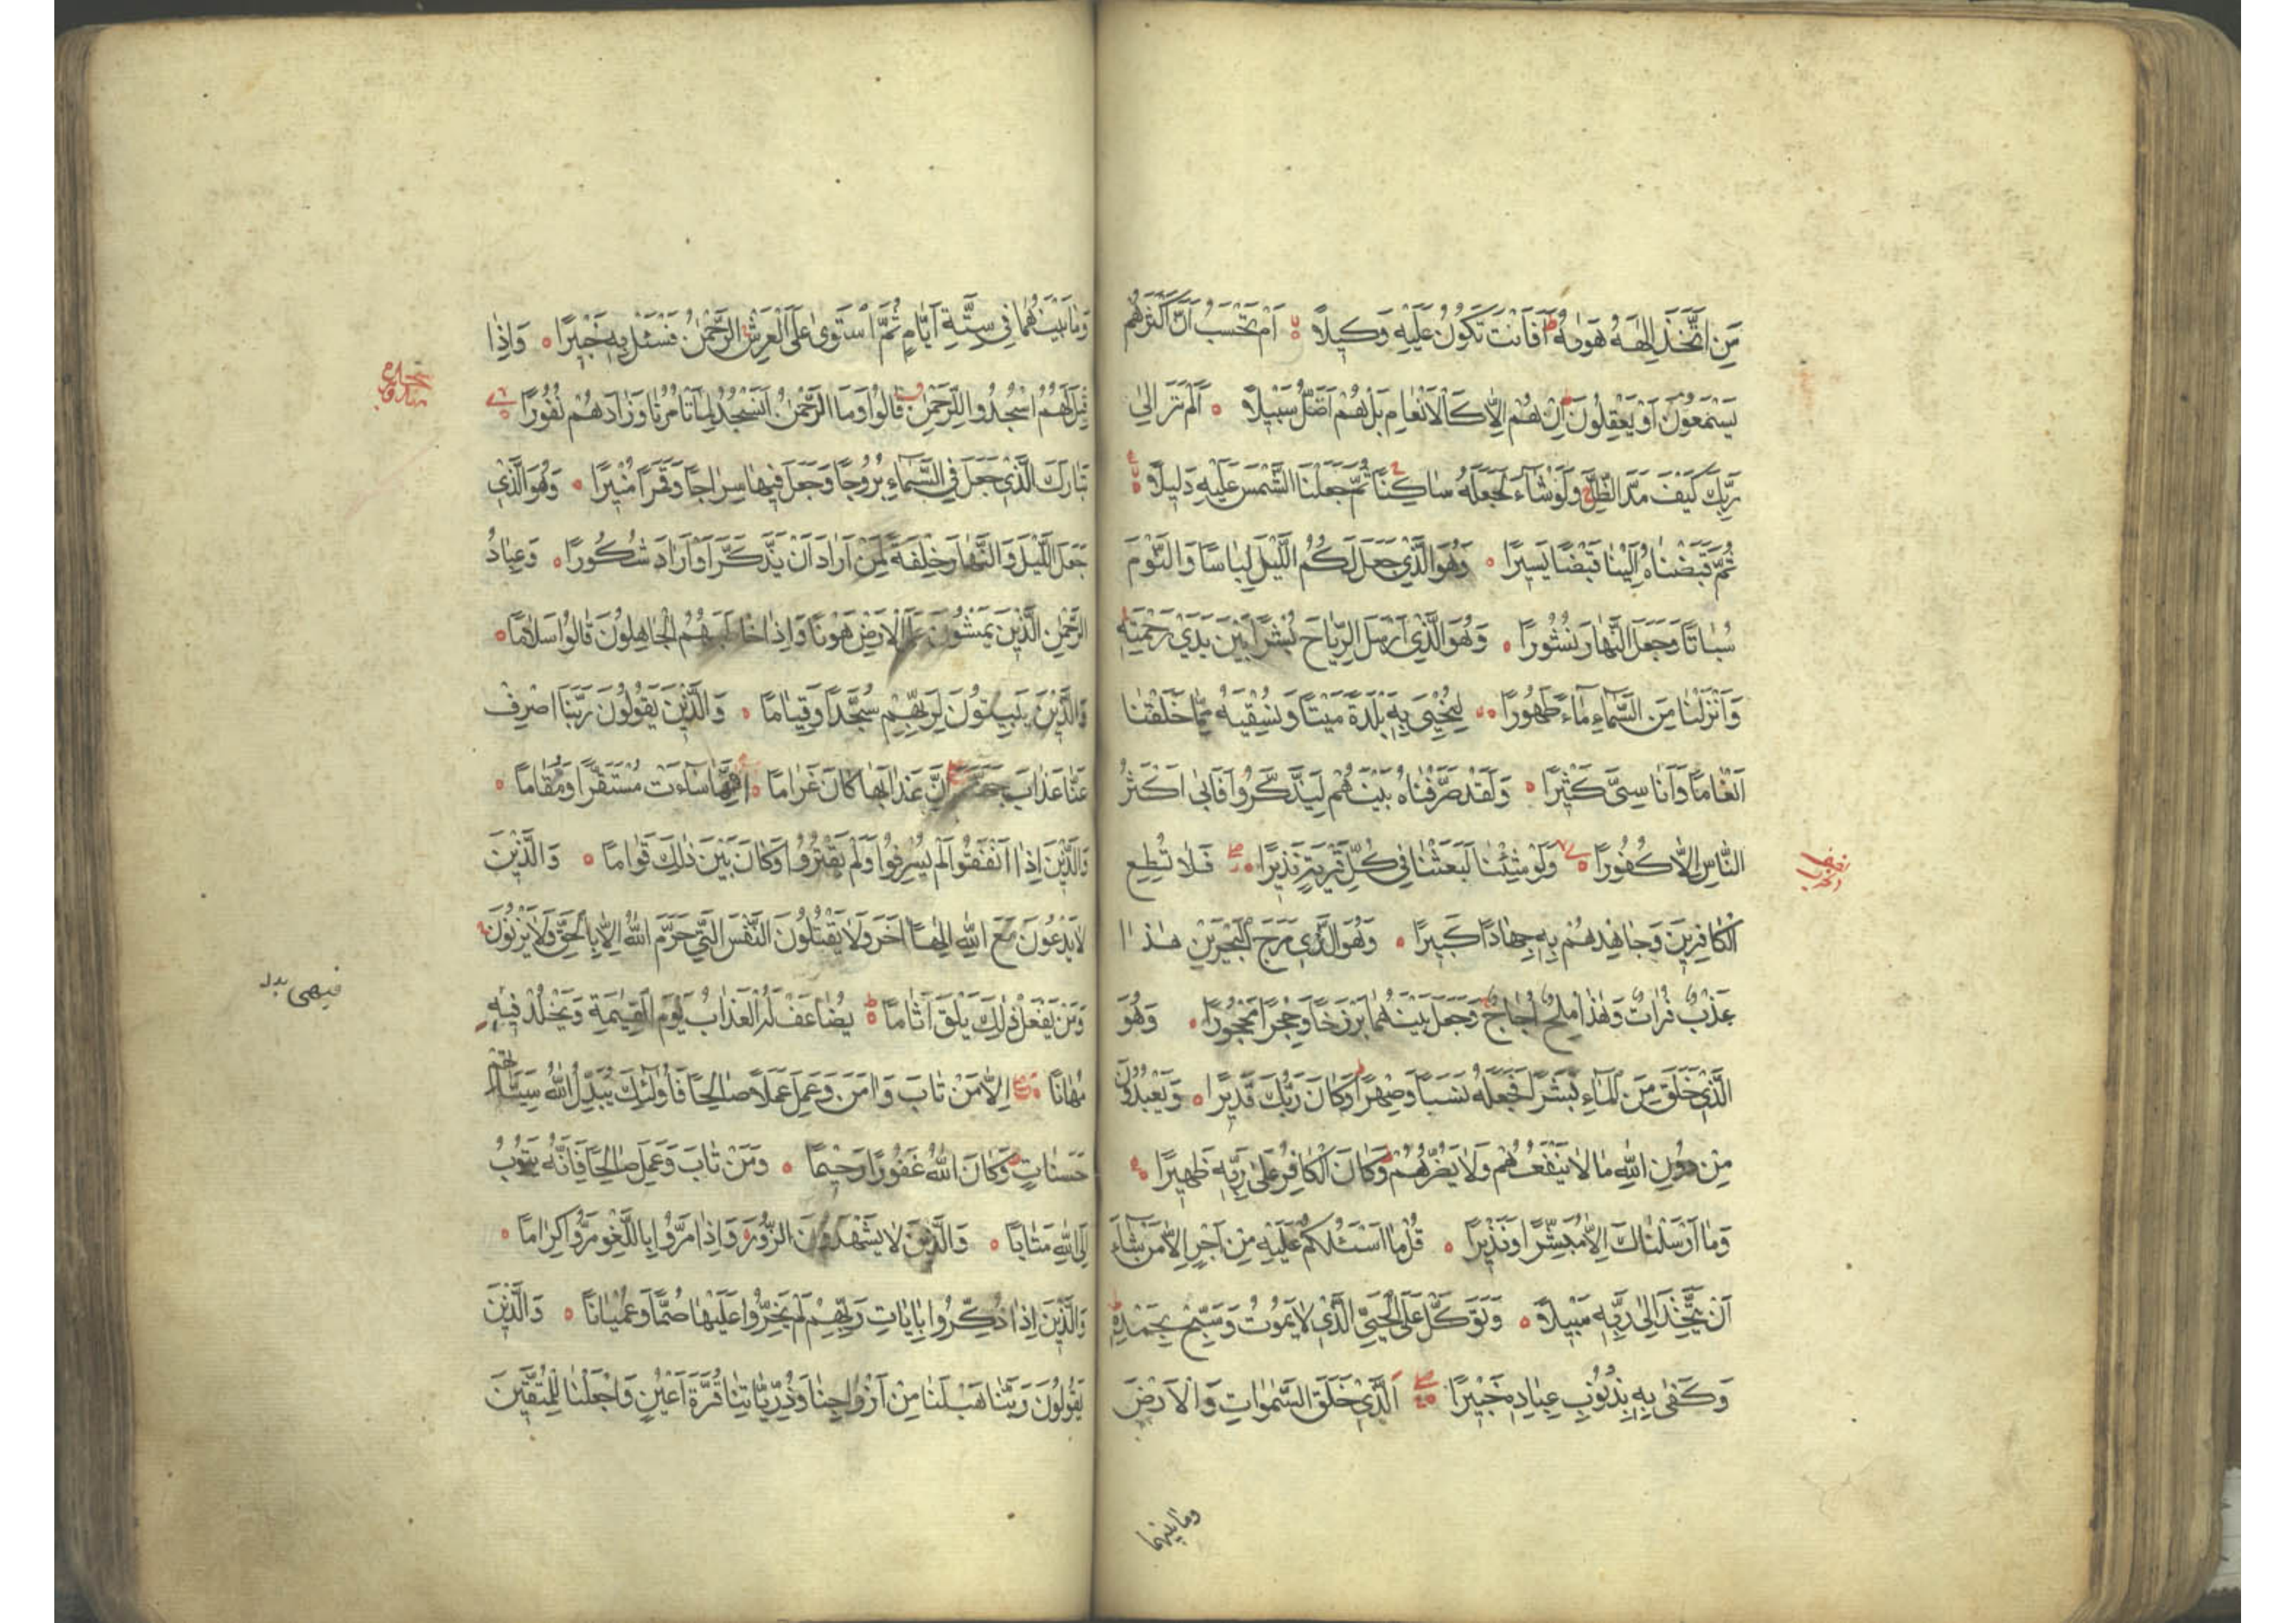 مَنِ اتَّخَذَ اِلٰهَهُ هَوٰيهُ اَفَاَنْتَ تَكُونُ عَلَيْهِ وَكِيلًا اَمْ تَحْسَبُ اَنَّ اَكْثَرَهُمْ
يَسْتَمِعُونَ اَوْ يَعْقِلُونَ اِنْ هُمْ اِلَّا كَالْاَنْعَامِ بَلْ هُمْ اَضَلُّ سَبِيلًا اَلَمْ تَرَ اِلٰى
رَبِّكَ كَيْفَ مَدَّ الظِّلَّ وَلَوْ شَاۤءَ لَجَعَلَهُ سَاكِنًا ثُمَّ جَعَلْنَا الشَّمْسَ عَلَيْهِ دَلِيلًا
ثُمَّ قَبَضْنَاهُ اِلَيْنَا قَبْضًا يَسِيرًا وَهُوَ الَّذِي جَعَلَ لَكُمُ الَّيْلَ لِبَاسًا وَالنَّوْمَ
سُبَاتًا وَجَعَلَ النَّهَارَ نُشُورًا وَهُوَ الَّذِي اَرْسَلَ الرِّيَاحَ بُشْرًا بَيْنَ يَدَيْ رَحْمَتِهِ
وَاَنْزَلْنَا مِنَ السَّمَاۤءِ مَاۤءً طَهُورًا لِنُحْيِيَ بِهِ بَلْدَةً مَيْتًا وَنُسْقِيَهُ مِمَّا خَلَقْنَا
اَنْعَامًا وَاَنَاسِيَّ كَثِيرًا وَلَقَدْ صَرَّفْنَاهُ بَيْنَهُمْ لِيَذَّكَّرُوا فَاَبٰى اَكْثَرُ
النَّاسِ اِلَّا كُفُورًا وَلَوْ شِئْنَا لَبَعَثْنَا فِي كُلِّ قَرْيَةٍ نَذِيرًا فَلَا تُطِعِ
الْكَافِرِينَ وَجَاهِدْهُمْ بِهِ جِهَادًا كَبِيرًا وَهُوَ الَّذِي مَرَجَ الْبَحْرَيْنِ هٰذَا
عَذْبٌ فُرَاتٌ وَهٰذَا مِلْحٌ اُجَاجٌ وَجَعَلَ بَيْنَهُمَا بَرْزَخًا وَحِجْرًا مَحْجُورًا وَهُوَ
الَّذِي خَلَقَ مِنَ الْمَاۤءِ بَشَرًا فَجَعَلَهُ نَسَبًا وَصِهْرًا وَكَانَ رَبُّكَ قَدِيرًا وَيَعْبُدُونَ
مِنْ دُونِ اللّٰهِ مَا لَا يَنْفَعُهُمْ وَلَا يَضُرُّهُمْ وَكَانَ الْكَافِرُ عَلٰى رَبِّهِ ظَهِيرًا
وَمَا اَرْسَلْنَاكَ اِلَّا مُبَشِّرًا وَنَذِيرًا قُلْ مَا اَسْئَلُكُمْ عَلَيْهِ مِنْ اَجْرٍ اِلَّا مَنْ شَاۤءَ
اَنْ يَتَّخِذَ اِلٰى رَبِّهِ سَبِيلًا وَتَوَكَّلْ عَلَى الْحَيِّ الَّذِي لَا يَمُوتُ وَسَبِّحْ بِحَمْدِهِ
وَكَفٰى بِهِ بِذُنُوبِ عِبَادِهِ خَبِيرًا اَلَّذِي خَلَقَ السَّمٰوَاتِ وَالْاَرْضَ
وما بينهما
وَمَا بَيْنَهُمَا فِي سِتَّةِ اَيَّامٍ ثُمَّ اسْتَوٰى عَلَى الْعَرْشِ الرَّحْمٰنُ فَسْئَلْ بِهِ خَبِيرًا وَاِذَا
قِيلَ لَهُمُ اسْجُدُوا لِلرَّحْمٰنِ قَالُوا وَمَا الرَّحْمٰنُ اَنَسْجُدُ لِمَا تَاْمُرُنَا وَزَادَهُمْ نُفُورًا
تَبَارَكَ الَّذِي جَعَلَ فِي السَّمَاۤءِ بُرُوجًا وَجَعَلَ فِيهَا سِرَاجًا وَقَمَرًا مُنِيرًا وَهُوَ الَّذِي
جَعَلَ الَّيْلَ وَالنَّهَارَ خِلْفَةً لِمَنْ اَرَادَ اَنْ يَذَّكَّرَ اَوْ اَرَادَ شُكُورًا وَعِبَادُ
الرَّحْمٰنِ الَّذِينَ يَمْشُونَ عَلَى الْاَرْضِ هَوْنًا وَاِذَا خَاطَبَهُمُ الْجَاهِلُونَ قَالُوا سَلَامًا
وَالَّذِينَ يَبِيتُونَ لِرَبِّهِمْ سُجَّدًا وَقِيَامًا وَالَّذِينَ يَقُولُونَ رَبَّنَا اصْرِفْ
عَنَّا عَذَابَ جَهَنَّمَ اِنَّ عَذَابَهَا كَانَ غَرَامًا اِنَّهَا سَاۤءَتْ مُسْتَقَرًّا وَمُقَامًا
وَالَّذِينَ اِذَا اَنْفَقُوا لَمْ يُسْرِفُوا وَلَمْ يَقْتُرُوا وَكَانَ بَيْنَ ذٰلِكَ قَوَامًا وَالَّذِينَ
لَا يَدْعُونَ مَعَ اللّٰهِ اِلٰهًا اٰخَرَ وَلَا يَقْتُلُونَ النَّفْسَ الَّتِي حَرَّمَ اللّٰهُ اِلَّا بِالْحَقِّ وَلَا يَزْنُونَ
وَمَنْ يَفْعَلْ ذٰلِكَ يَلْقَ اَثَامًا يُضَاعَفْ لَهُ الْعَذَابُ يَوْمَ الْقِيٰمَةِ وَيَخْلُدْ فِيهِ
مُهَانًا اِلَّا مَنْ تَابَ وَاٰمَنَ وَعَمِلَ عَمَلًا صَالِحًا فَاُولٰۤئِكَ يُبَدِّلُ اللّٰهُ سَيِّئَاتِهِمْ
حَسَنَاتٍ وَكَانَ اللّٰهُ غَفُورًا رَحِيمًا وَمَنْ تَابَ وَعَمِلَ صَالِحًا فَاِنَّهُ يَتُوبُ
اِلَى اللّٰهِ مَتَابًا وَالَّذِينَ لَا يَشْهَدُونَ الزُّورَ وَاِذَا مَرُّوا بِاللَّغْوِ مَرُّوا كِرَامًا
وَالَّذِينَ اِذَا ذُكِّرُوا بِاٰيَاتِ رَبِّهِمْ لَمْ يَخِرُّوا عَلَيْهَا صُمًّا وَعُمْيَانًا وَالَّذِينَ
يَقُولُونَ رَبَّنَا هَبْ لَنَا مِنْ اَزْوَاجِنَا وَذُرِّيَّاتِنَا قُرَّةَ اَعْيُنٍ وَاجْعَلْنَا لِلْمُتَّقِينَ